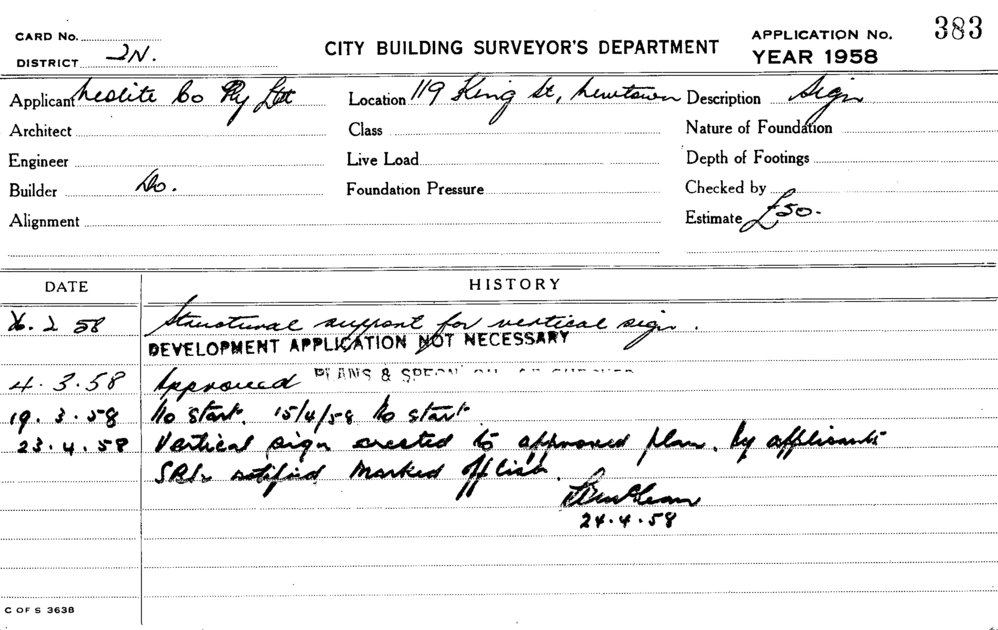 CARD No. CITY BUILDING SURVEYOR'S DEPARTMENT APPLICATION No. 383
DISTRICT 2N. YEAR 1958
Applicant Neolite Co Pty Ltd Location 119 King St, Newtown Description Sign
Architect Class Nature of Foundation
Engineer Live Load Depth of Footings
Builder Do. Foundation Pressure Checked by
Alignment Estimate £50.
DATE HISTORY
26. 2 58 Structural support for vertical sign.
DEVELOPMENT APPLICATION NOT NECESSARY
4. 3. 58 Approved PLANS & SPECN
19. 3. 58 No start. 15/4/58 No start
23. 4. 58 Vertical sign erected to approved plan. by applicants
notified Marked off
24. 4. 58
C OF S 363B